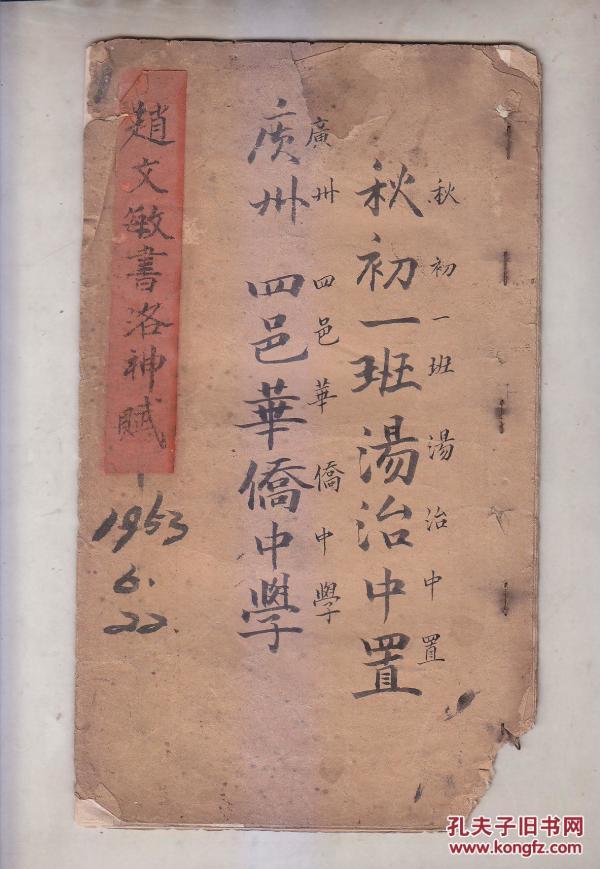 秋初一班湯治中置
秋初一班湯治中置
廣州四邑華僑中學
廣州 四邑華僑中學
趙文敏書洛神賦
1953
6.
22.
孔夫子旧书网
www.kongfz.com